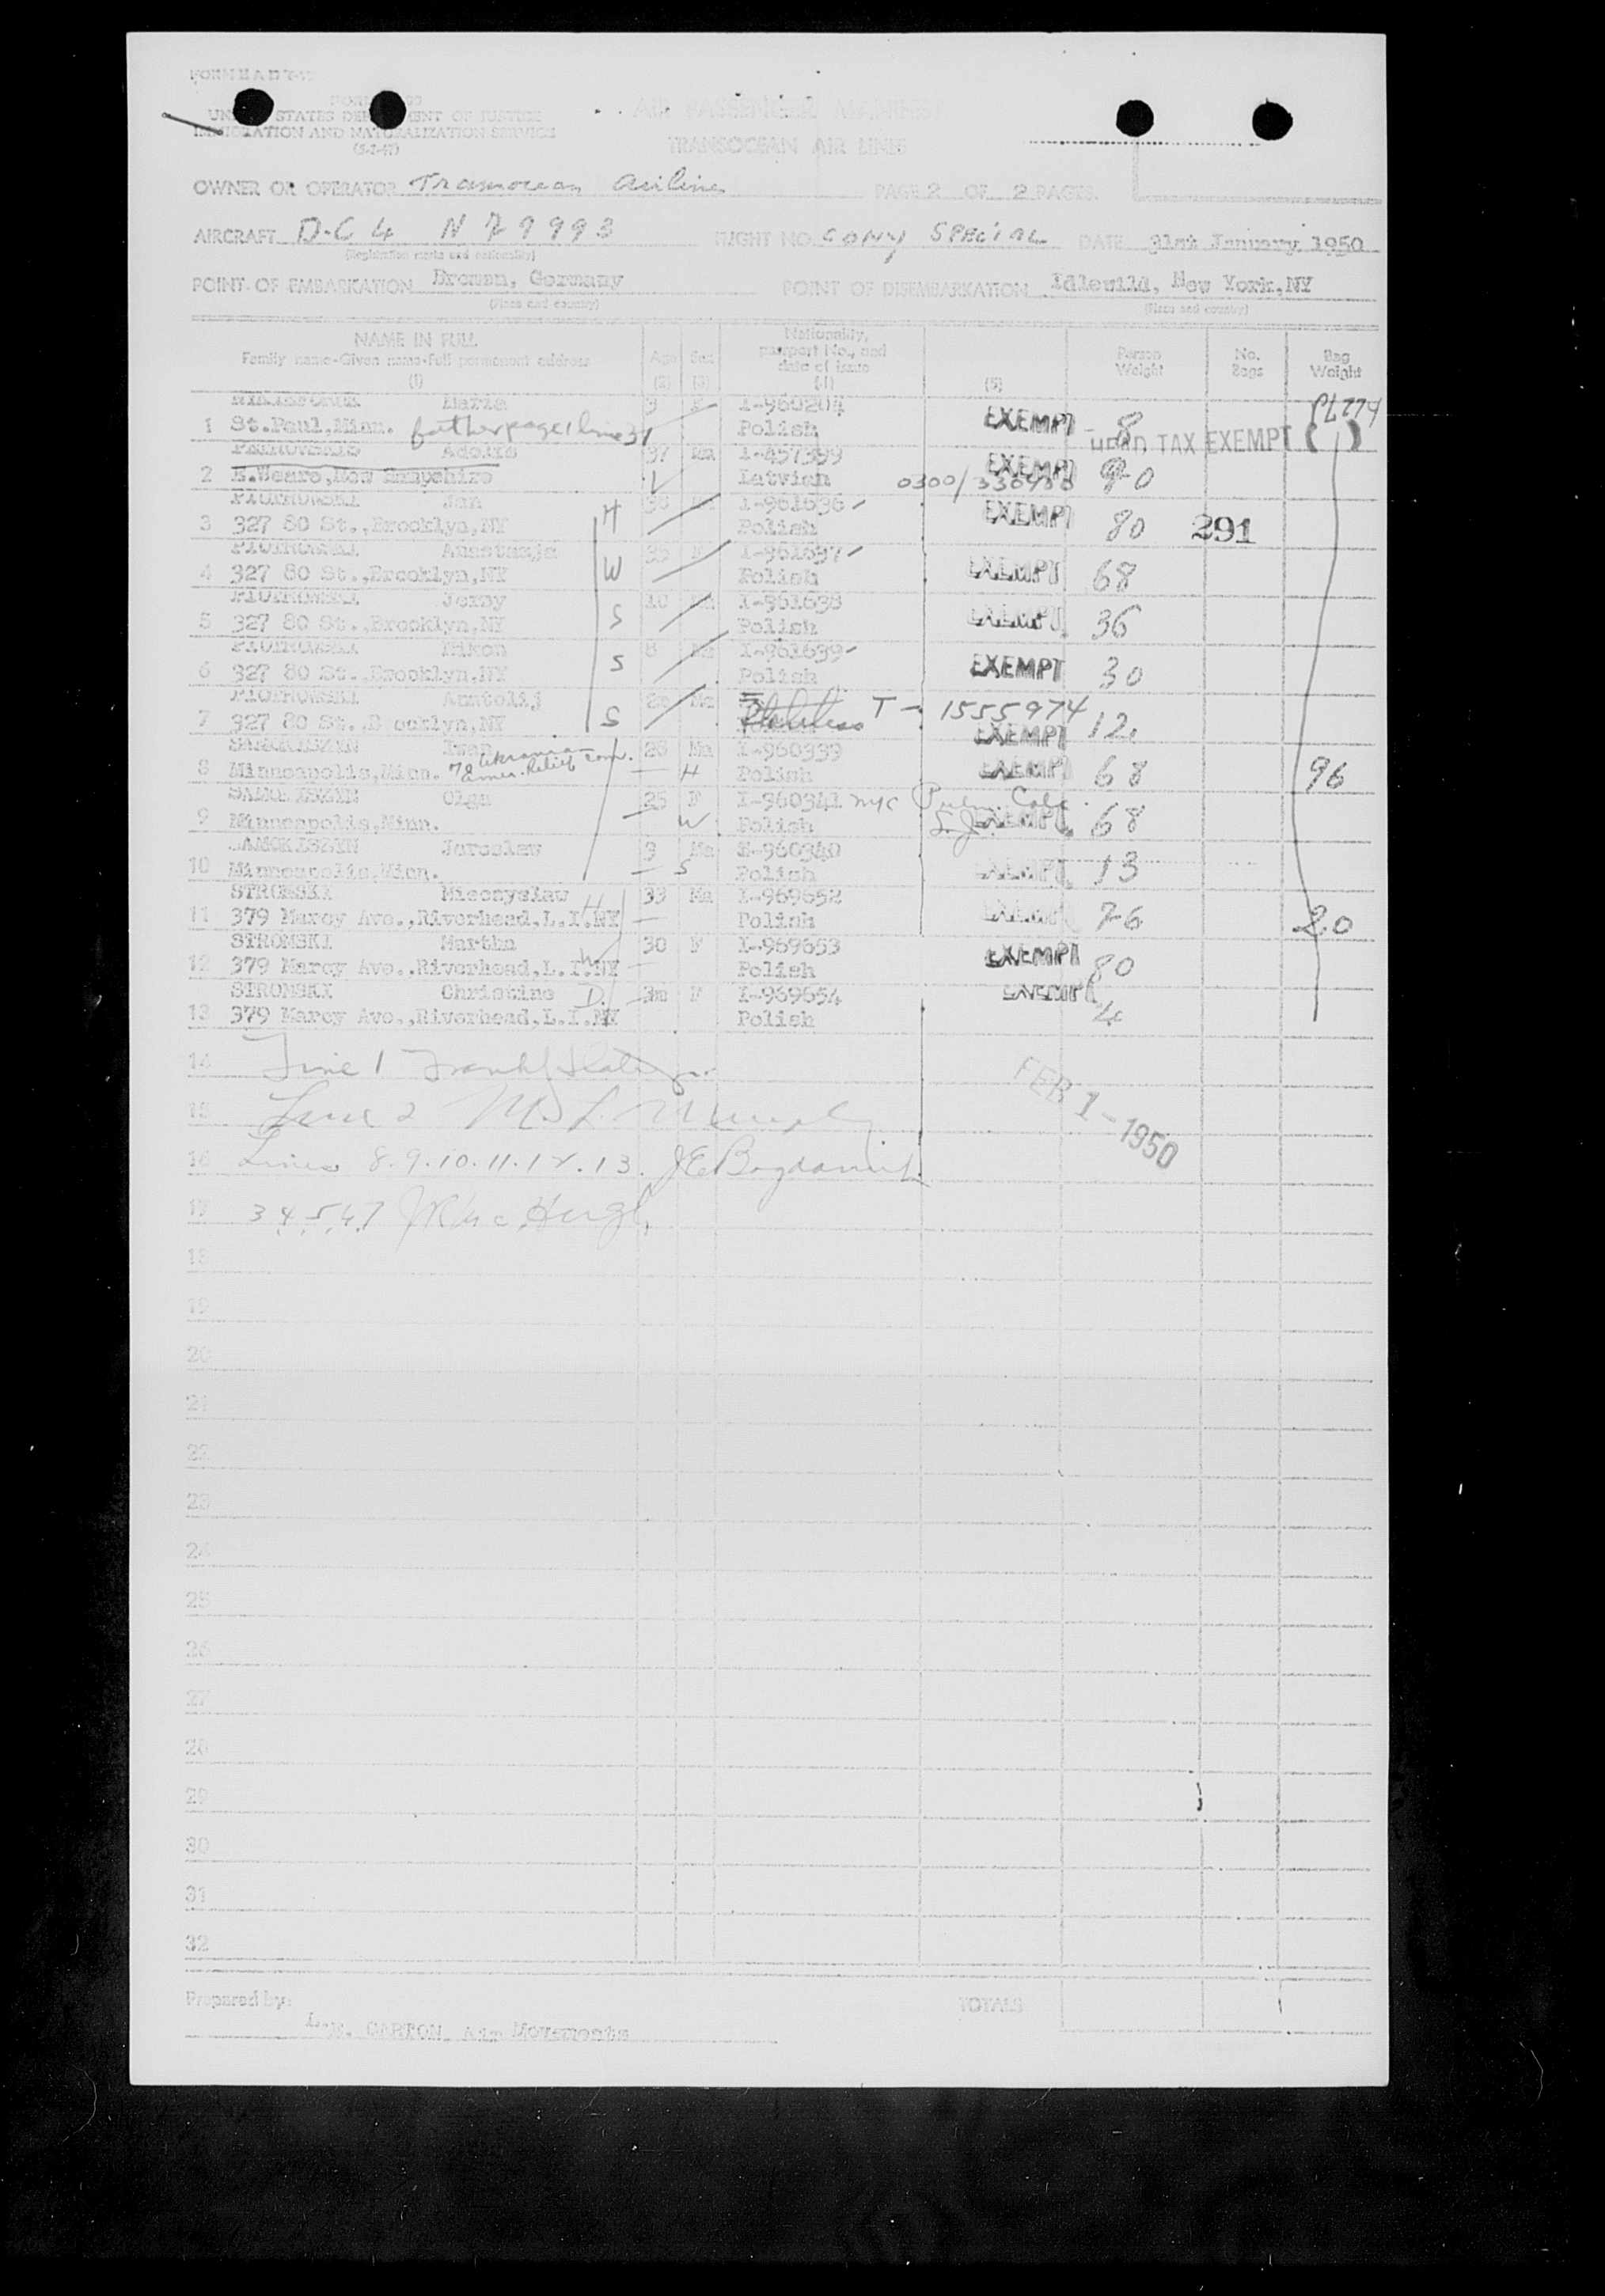 UNITED STATES DEPARTMENT OF JUSTICE
IMMIGRATION AND NATURALIZATION SERVICE
AIR PASSENGER MANIFEST
TRANSOCEAN AIR LINES
OWNER OR OPERATOR Transocean Airlines PAGE 2 OF 2 PAGES
AIRCRAFT D-C 4 N 79993 FLIGHT NO. SPECIAL DATE 31st January, 1950
(Registration marks and nationality)
POINT OF EMBARKATION Bremen, Germany POINT OF DISEMBARKATION Idlewild, New York, NY
(Place and country) (Place and country)
NAME IN FULL Nationality,
Family name-Given name-full permanent address Age Sex passport No., and date of issue Person Weight No. Bags Bag Weight
(1) (2) (3) (4) (5)
Maria 3 F I-960204
1 St.Paul,Minn. father page 1 line 31 Polish EXEMPT 8
HEAD TAX EXEMPT ( )
Adolfs 37 Ma I-457399
2 E.Weare, New Hampshire Latvian 0300/ EXEMPT 90
PIOTROWSKI Jan 38 I-961636
3 327 80 St.,Brooklyn,NY H Polish EXEMPT 80 291
PIOTROWSKI Anastazja 35 F I-961637
4 327 80 St.,Brooklyn,NY W Polish EXEMPT 68
PIOTROWSKI Jerzy 10 Ma I-961638
5 327 80 St.,Brooklyn,NY S Polish EXEMPT 36
PIOTROWSKI 8 Ma I-961639
6 327 80 St.,Brooklyn,NY S Polish EXEMPT 30
PIOTROWSKI Anatolij Ma
7 327 80 St.,B ooklyn,NY S Stateless T-1555974 EXEMPT 12
Iwan 28 Ma I-960339
8 Minneapolis,Minn. % Ukranian Amer. Relief Com. H Polish EXEMPT 68 96
Olga 25 F I-960341 NYC
9 Minneapolis,Minn. W Polish EXEMPT 68
Jaroslaw 3 Ma I-960340
10 Minneapolis,Minn. S Polish EXEMPT 13
STROMSKI Mieczyslaw H 33 Ma I-969652
11 379 Marcy Ave.,Riverhead,L.I.NY Polish EXEMPT 76 20
STROMSKI Martha W 30 F I-969653
12 379 Marcy Ave.,Riverhead,L.I.NY Polish EXEMPT 80
STROMSKI Christine D. 3m F I-969654
13 379 Marcy Ave.,Riverhead,L.I.NY Polish EXEMPT 4
14 Line 1
15 Line 2
FEB 1-1950
16 Lines 8.9.10.11.12.13.
17 3,4,5,6,7
18
19
20
21
22
23
24
25
26
27
28
29
30
31
32
Prepared by: TOTALS
CARTON Air Movements